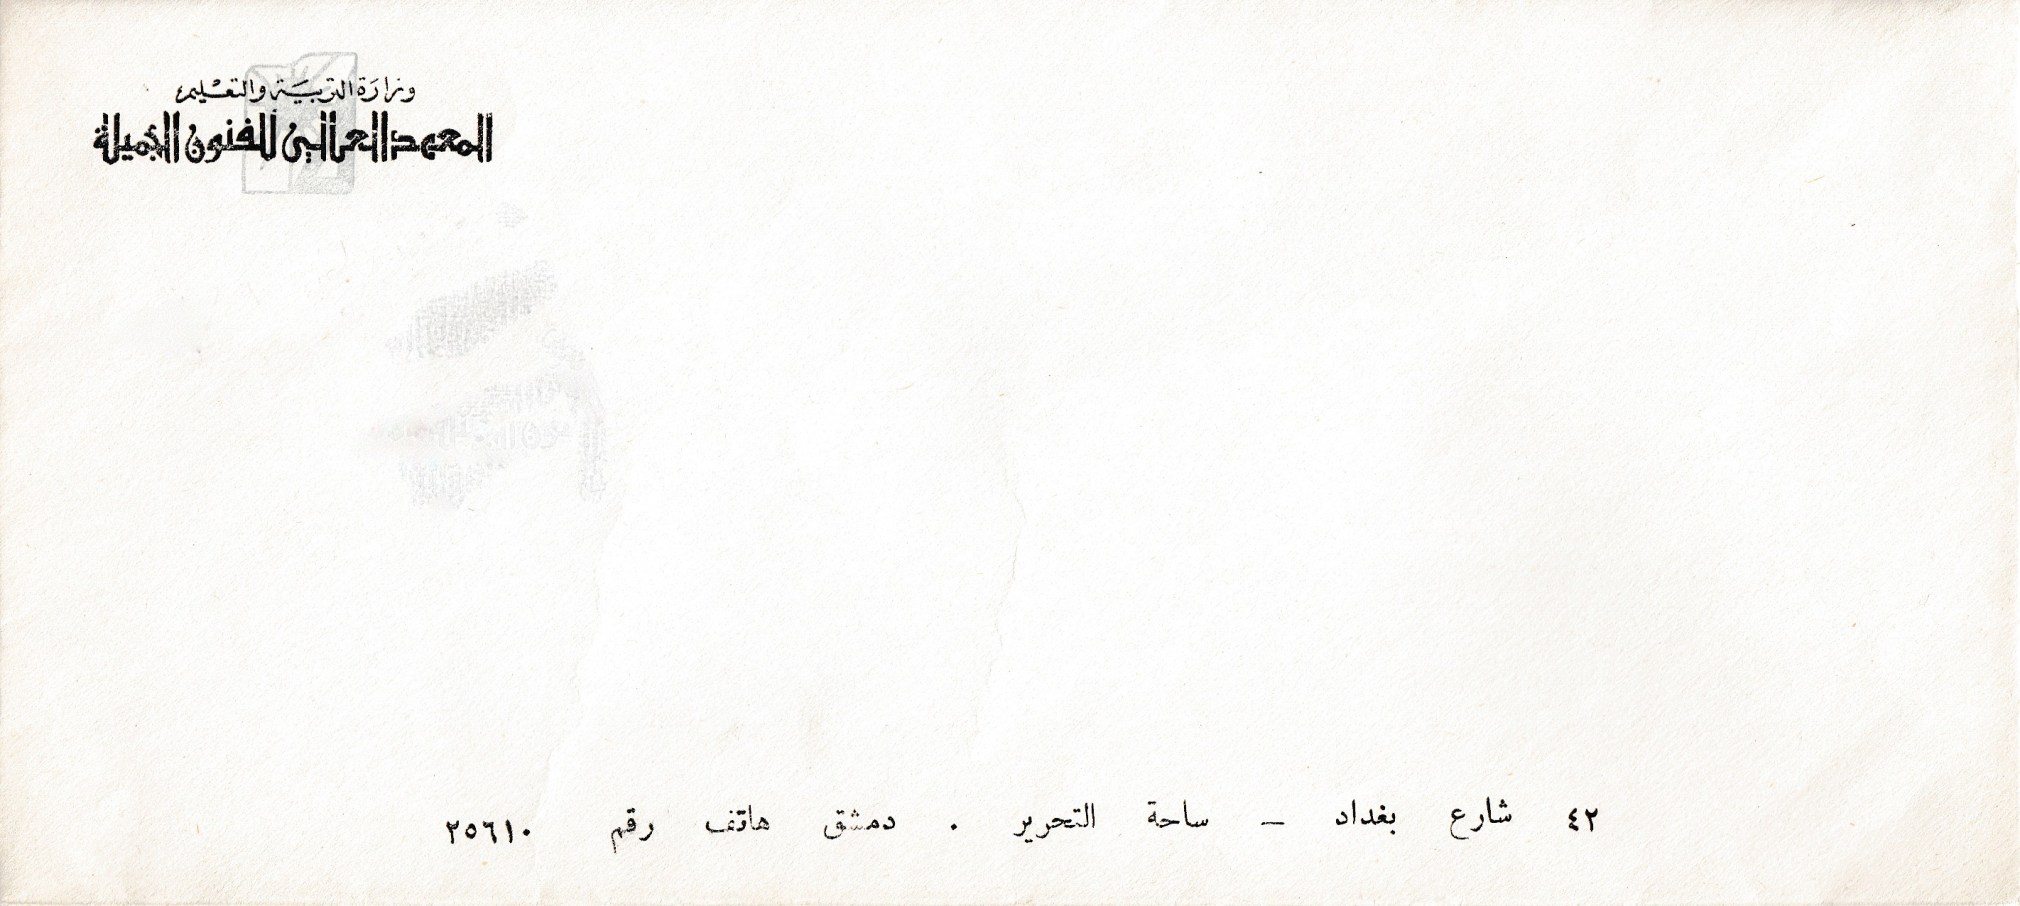 وزارة التربية والتعليم
المعهد العالي للفنون الجميلة
٤٢ شارع بغداد – ساحة التحرير . دمشق هاتف رقم ٢٥٦١٠